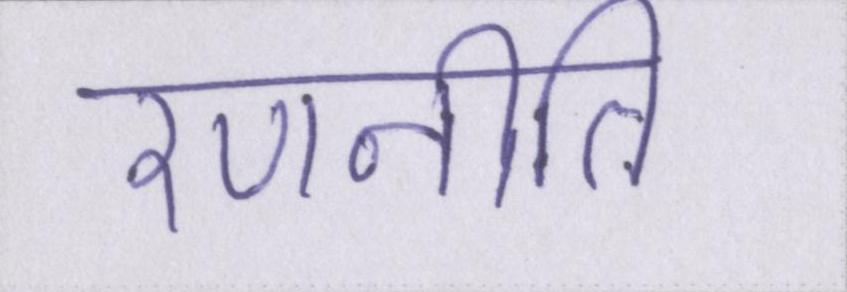 रणनीति